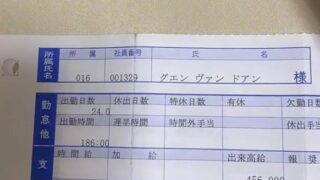 所属氏名
所属 社員番号 氏名
016 001329 グエン ヴァン ドアン 様
勤怠他
出勤日数 休出日数 特休日数 有休 欠勤日
24.0
出勤時間 遅早時間 時間外手当 休出手
186:00
支
時間給 加給 出来高給 報奨
456,000